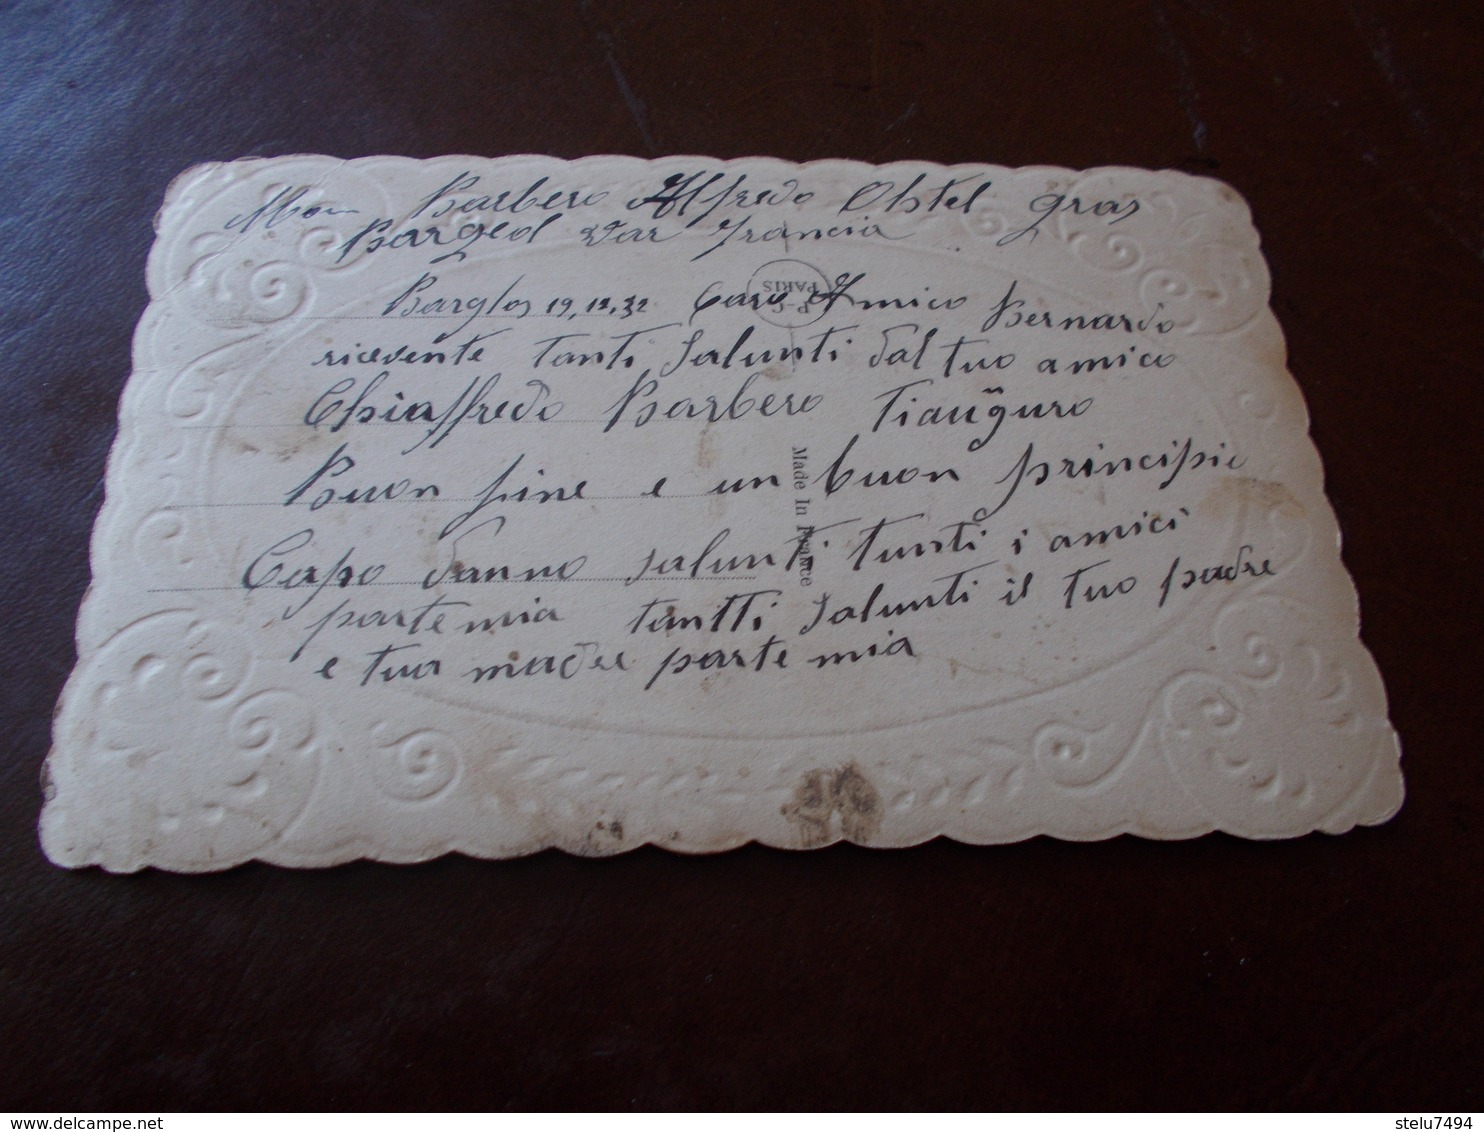 Mon Barbero Alfredo Ohtel gras
Barged Var Francia
Barglos 19,12,32 Caro Amico Bernardo
P-C
PARIS
ricevente tanti Salunti dal tuo amico
Chiaffredo Barbero Tiauguro
Buon fine e un buon principio
Made In France
Capo danno salunti tunti i amici
parte mia tantti Salunti il tuo padre
e tua madre parte mia
stelu7494